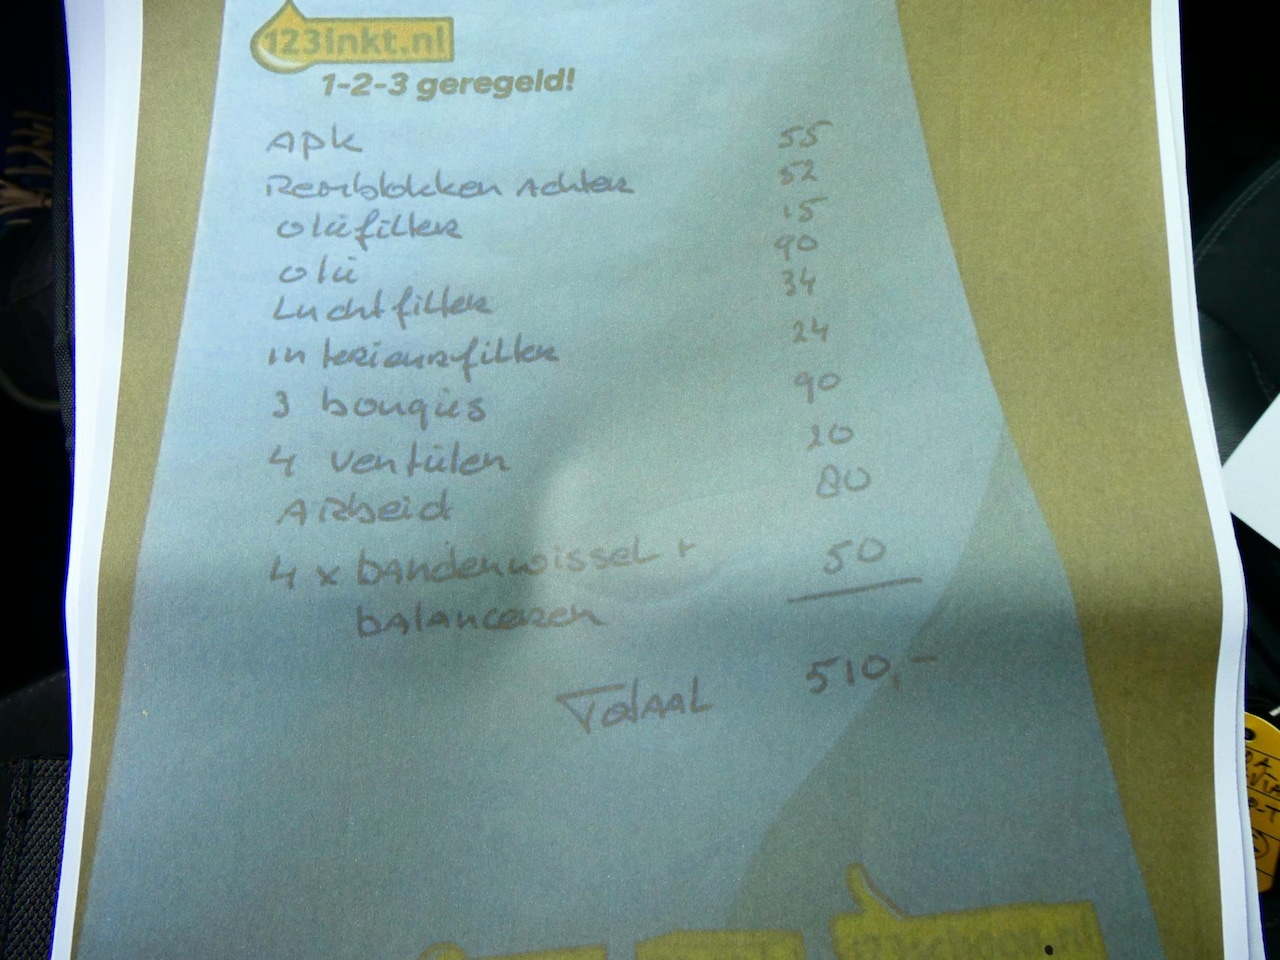 123inkt.nl
1-2-3 geregeld!
APK 55
Remblokken Achter 52
oliefilter 15
olie 90
Luchtfilter 34
interieurfilter 24
3 bougies 90
4 ventielen 20
Arbeid 80
4 x bandenwissel + 50
balanceren
Totaal 510,-